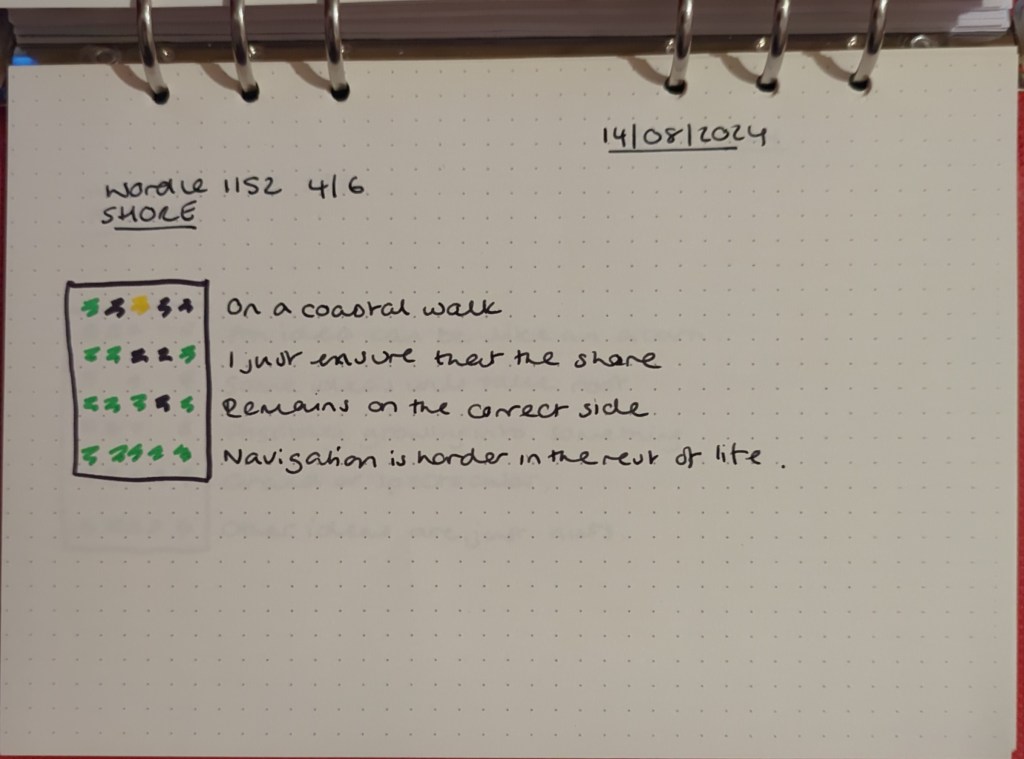 14/08/2024
Wordle 1152 4/6
SHORE
On a coastal walk
I just ensure that the shore
Remains on the correct side
Navigation is harder in the rest of life.